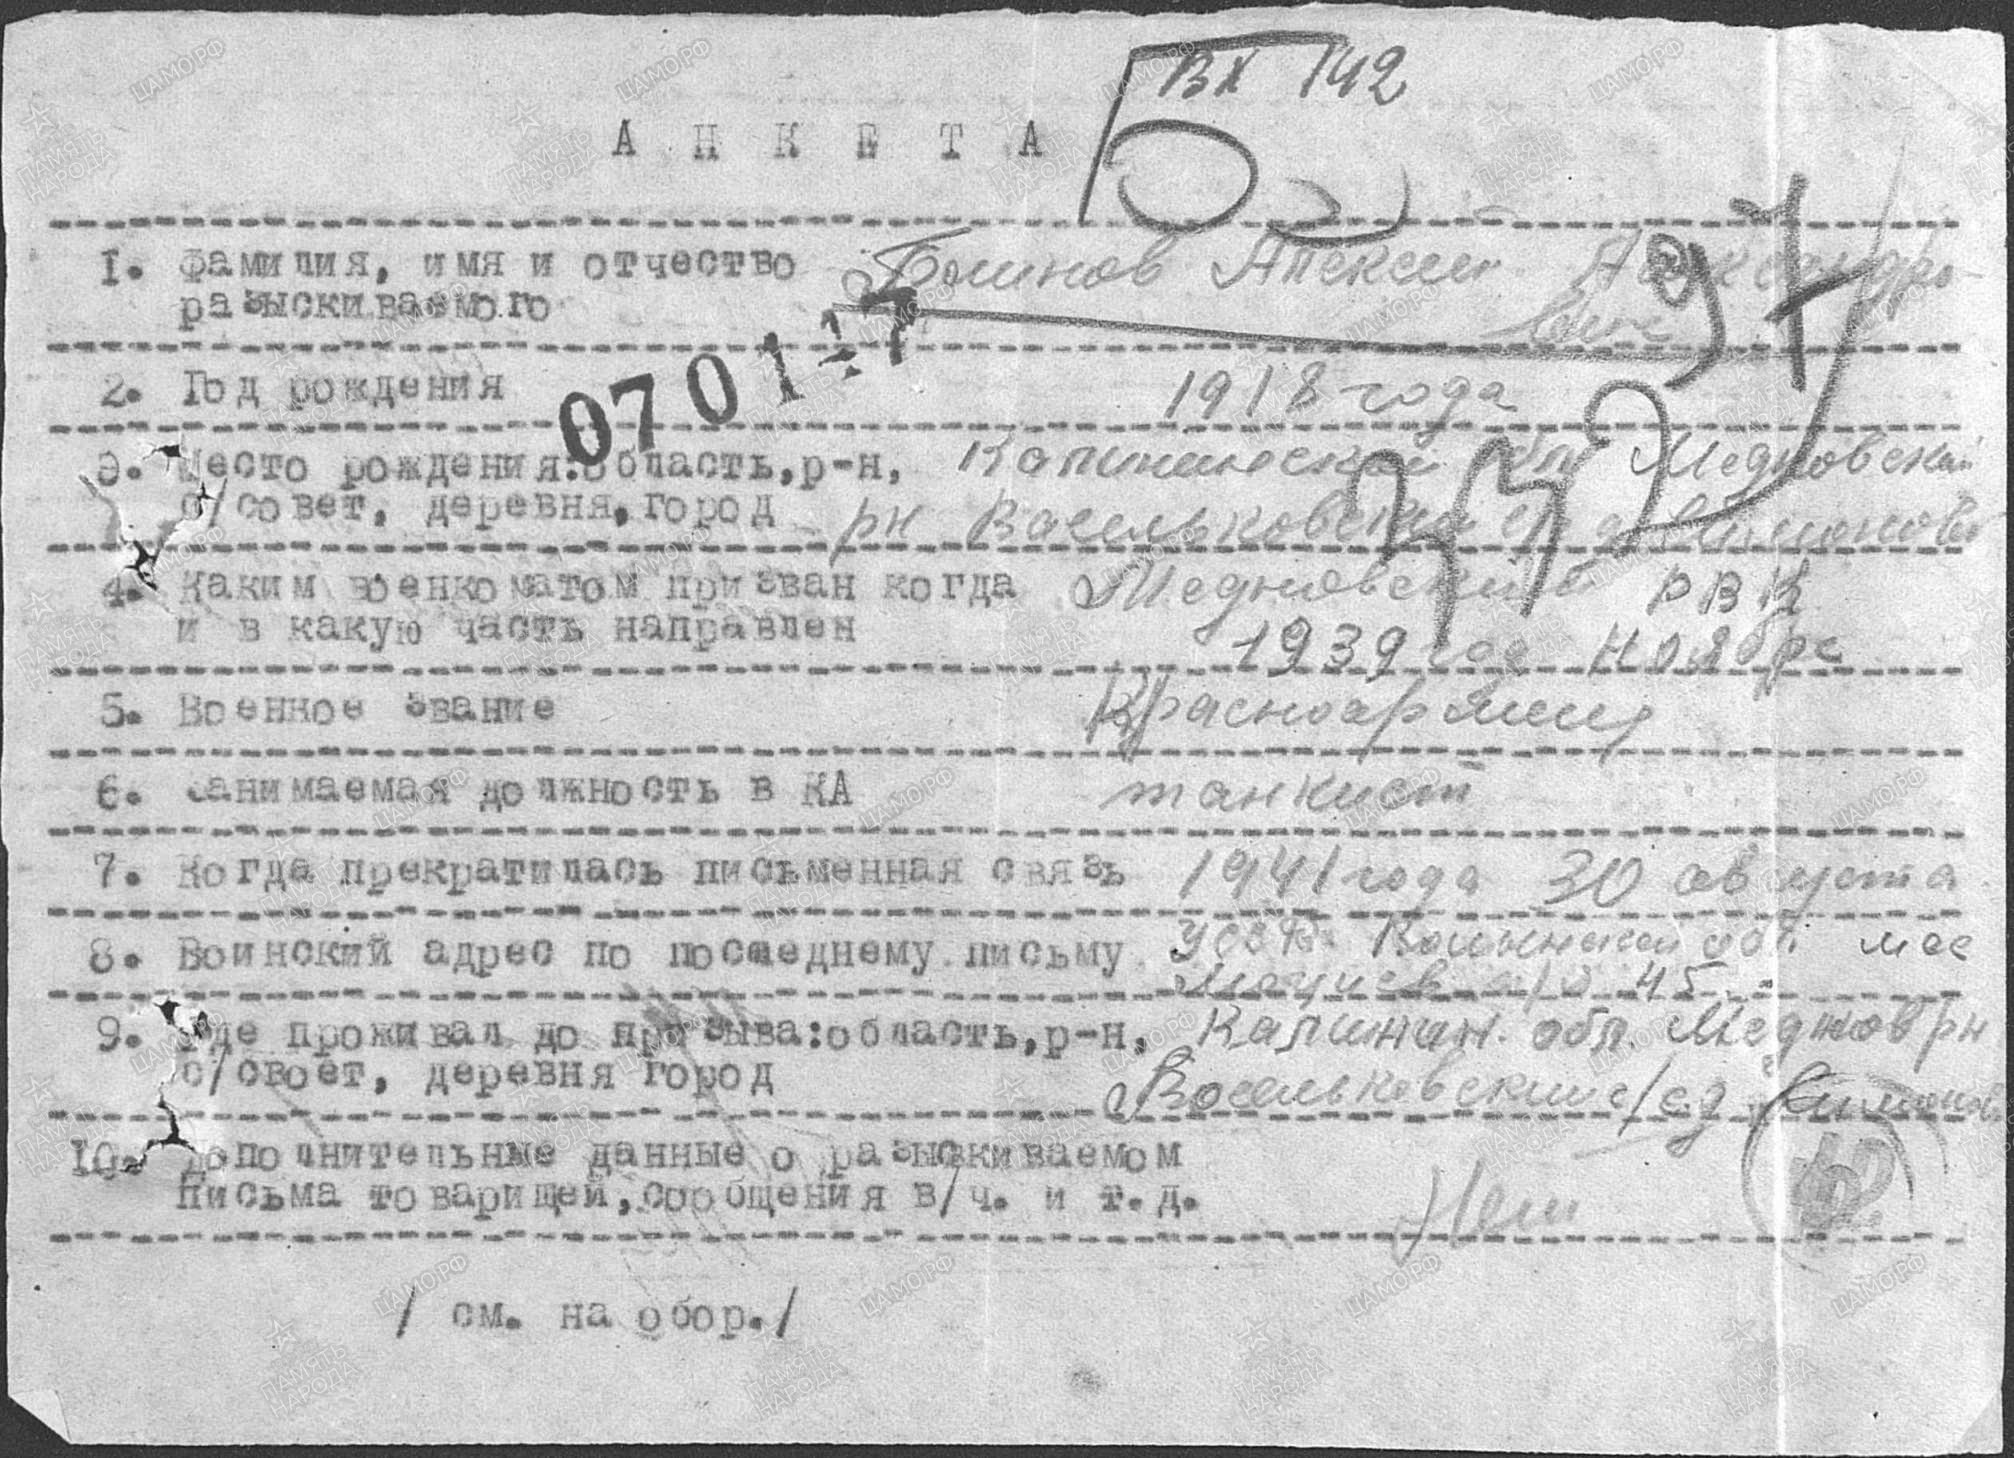 Вх 142
АНКЕТА
1. Фамилия, имя и отчество Блинов Алексей Александро-
разыскиваемого вич
070117
97
2. Год рождения 1918 года
3. Место рождения:область,р-н, Калининской обл Медновский
с/совет, деревня,город рн Васильковский с/с д.
4. Каким военкоматом призван когда Медновский РВК
и в какую часть направлен 1939 год ноябре
5. Военное звание Красноармеец
6. Занимаемая должность в КА танкист
7. Когда прекратилась письменная связь 1941 года 30 августа
8. Воинский адрес по последнему письму УССР Волынской обл. мес
п/я 45
9. Где проживал до призыва:область,р-н, Калинин. обл. Меднов рн
с/своет, деревня город Васильковский с/с д
10. Дополнительные данные о разыскиваемом
Письма товарищей,сообщения в/ч. и т.д. Нет
/ см. на обор./